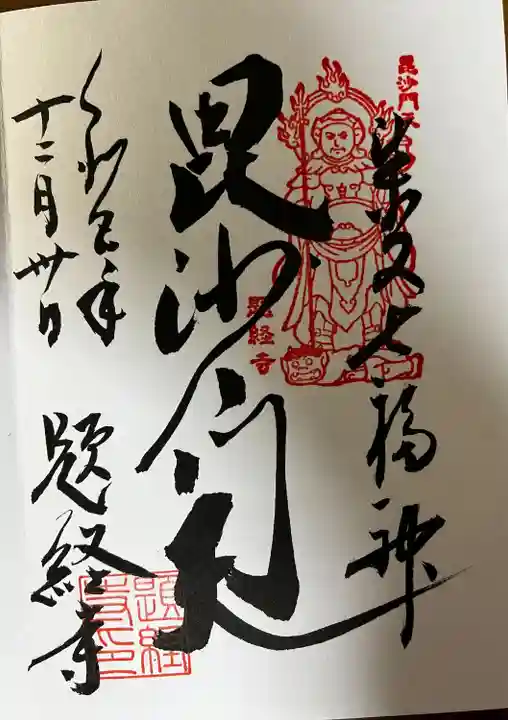 柴又七福神
毘沙門天
毘沙門天
題経寺
令和巳年
十二月卅日
題経寺
題経寺印